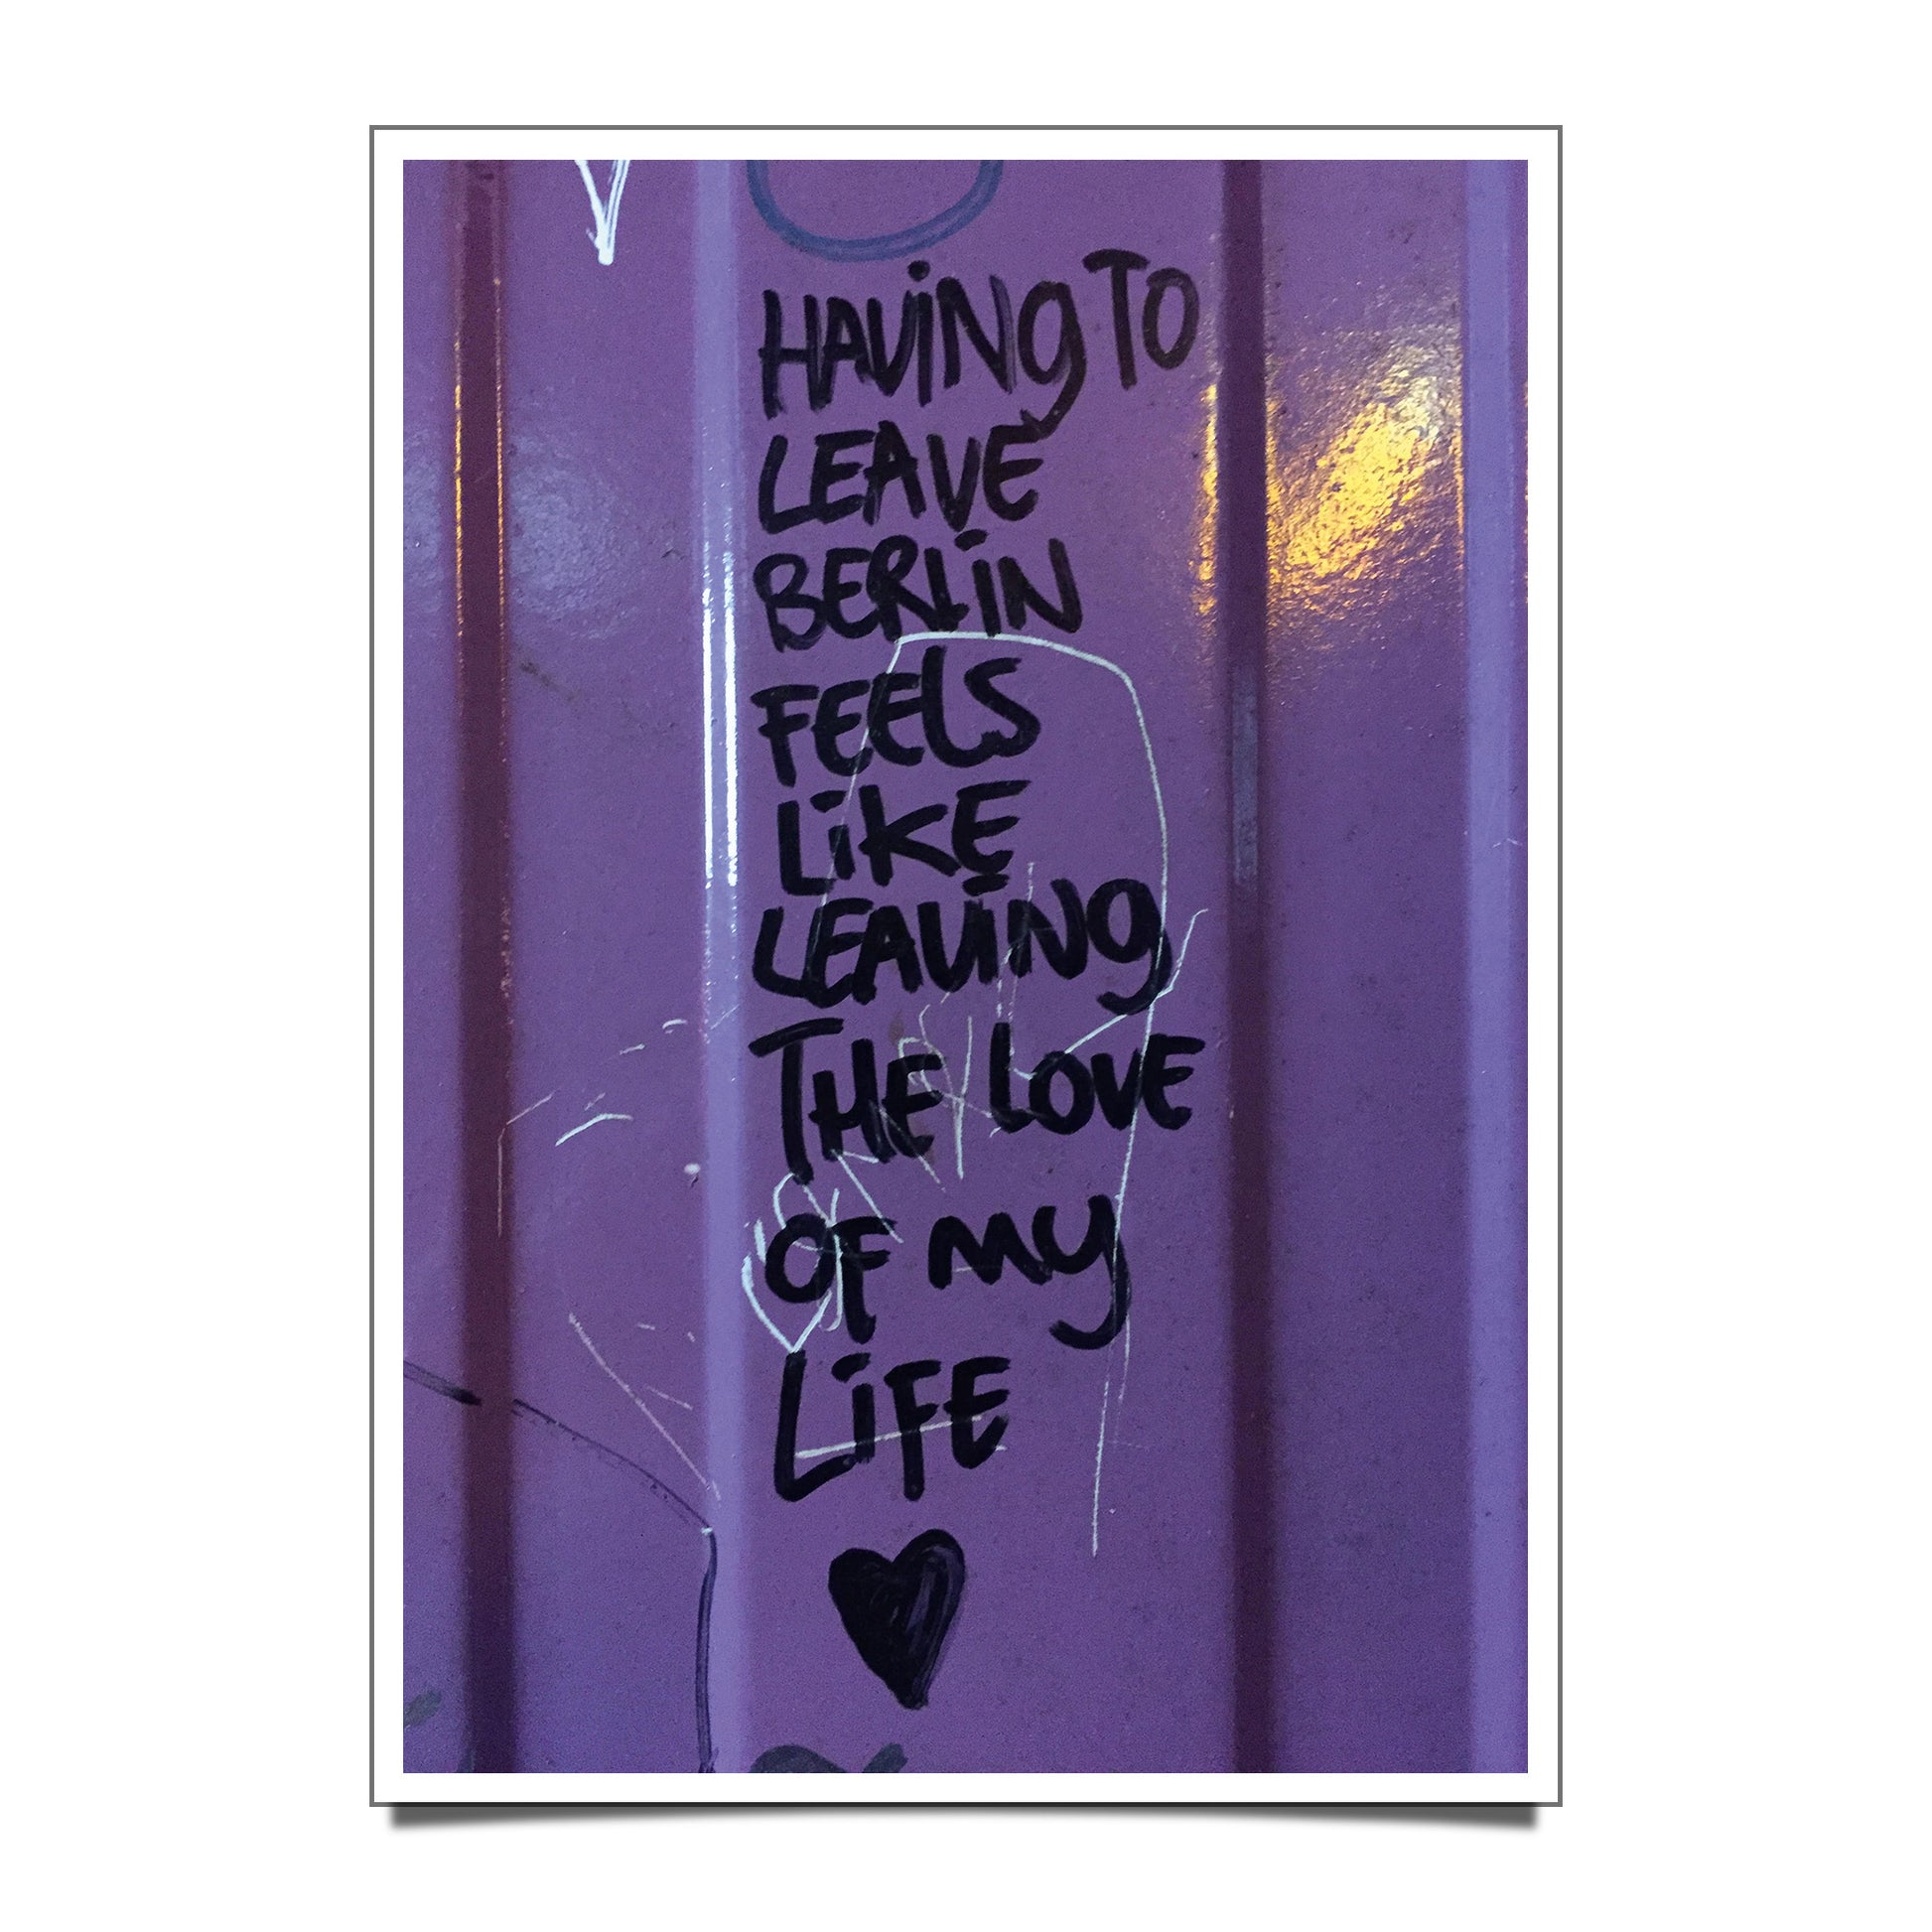 HAViNg TO
LEAVE
BERLiN
FEELS
LiKE
LEAViNg
THE LOVE
OF MY
LiFE